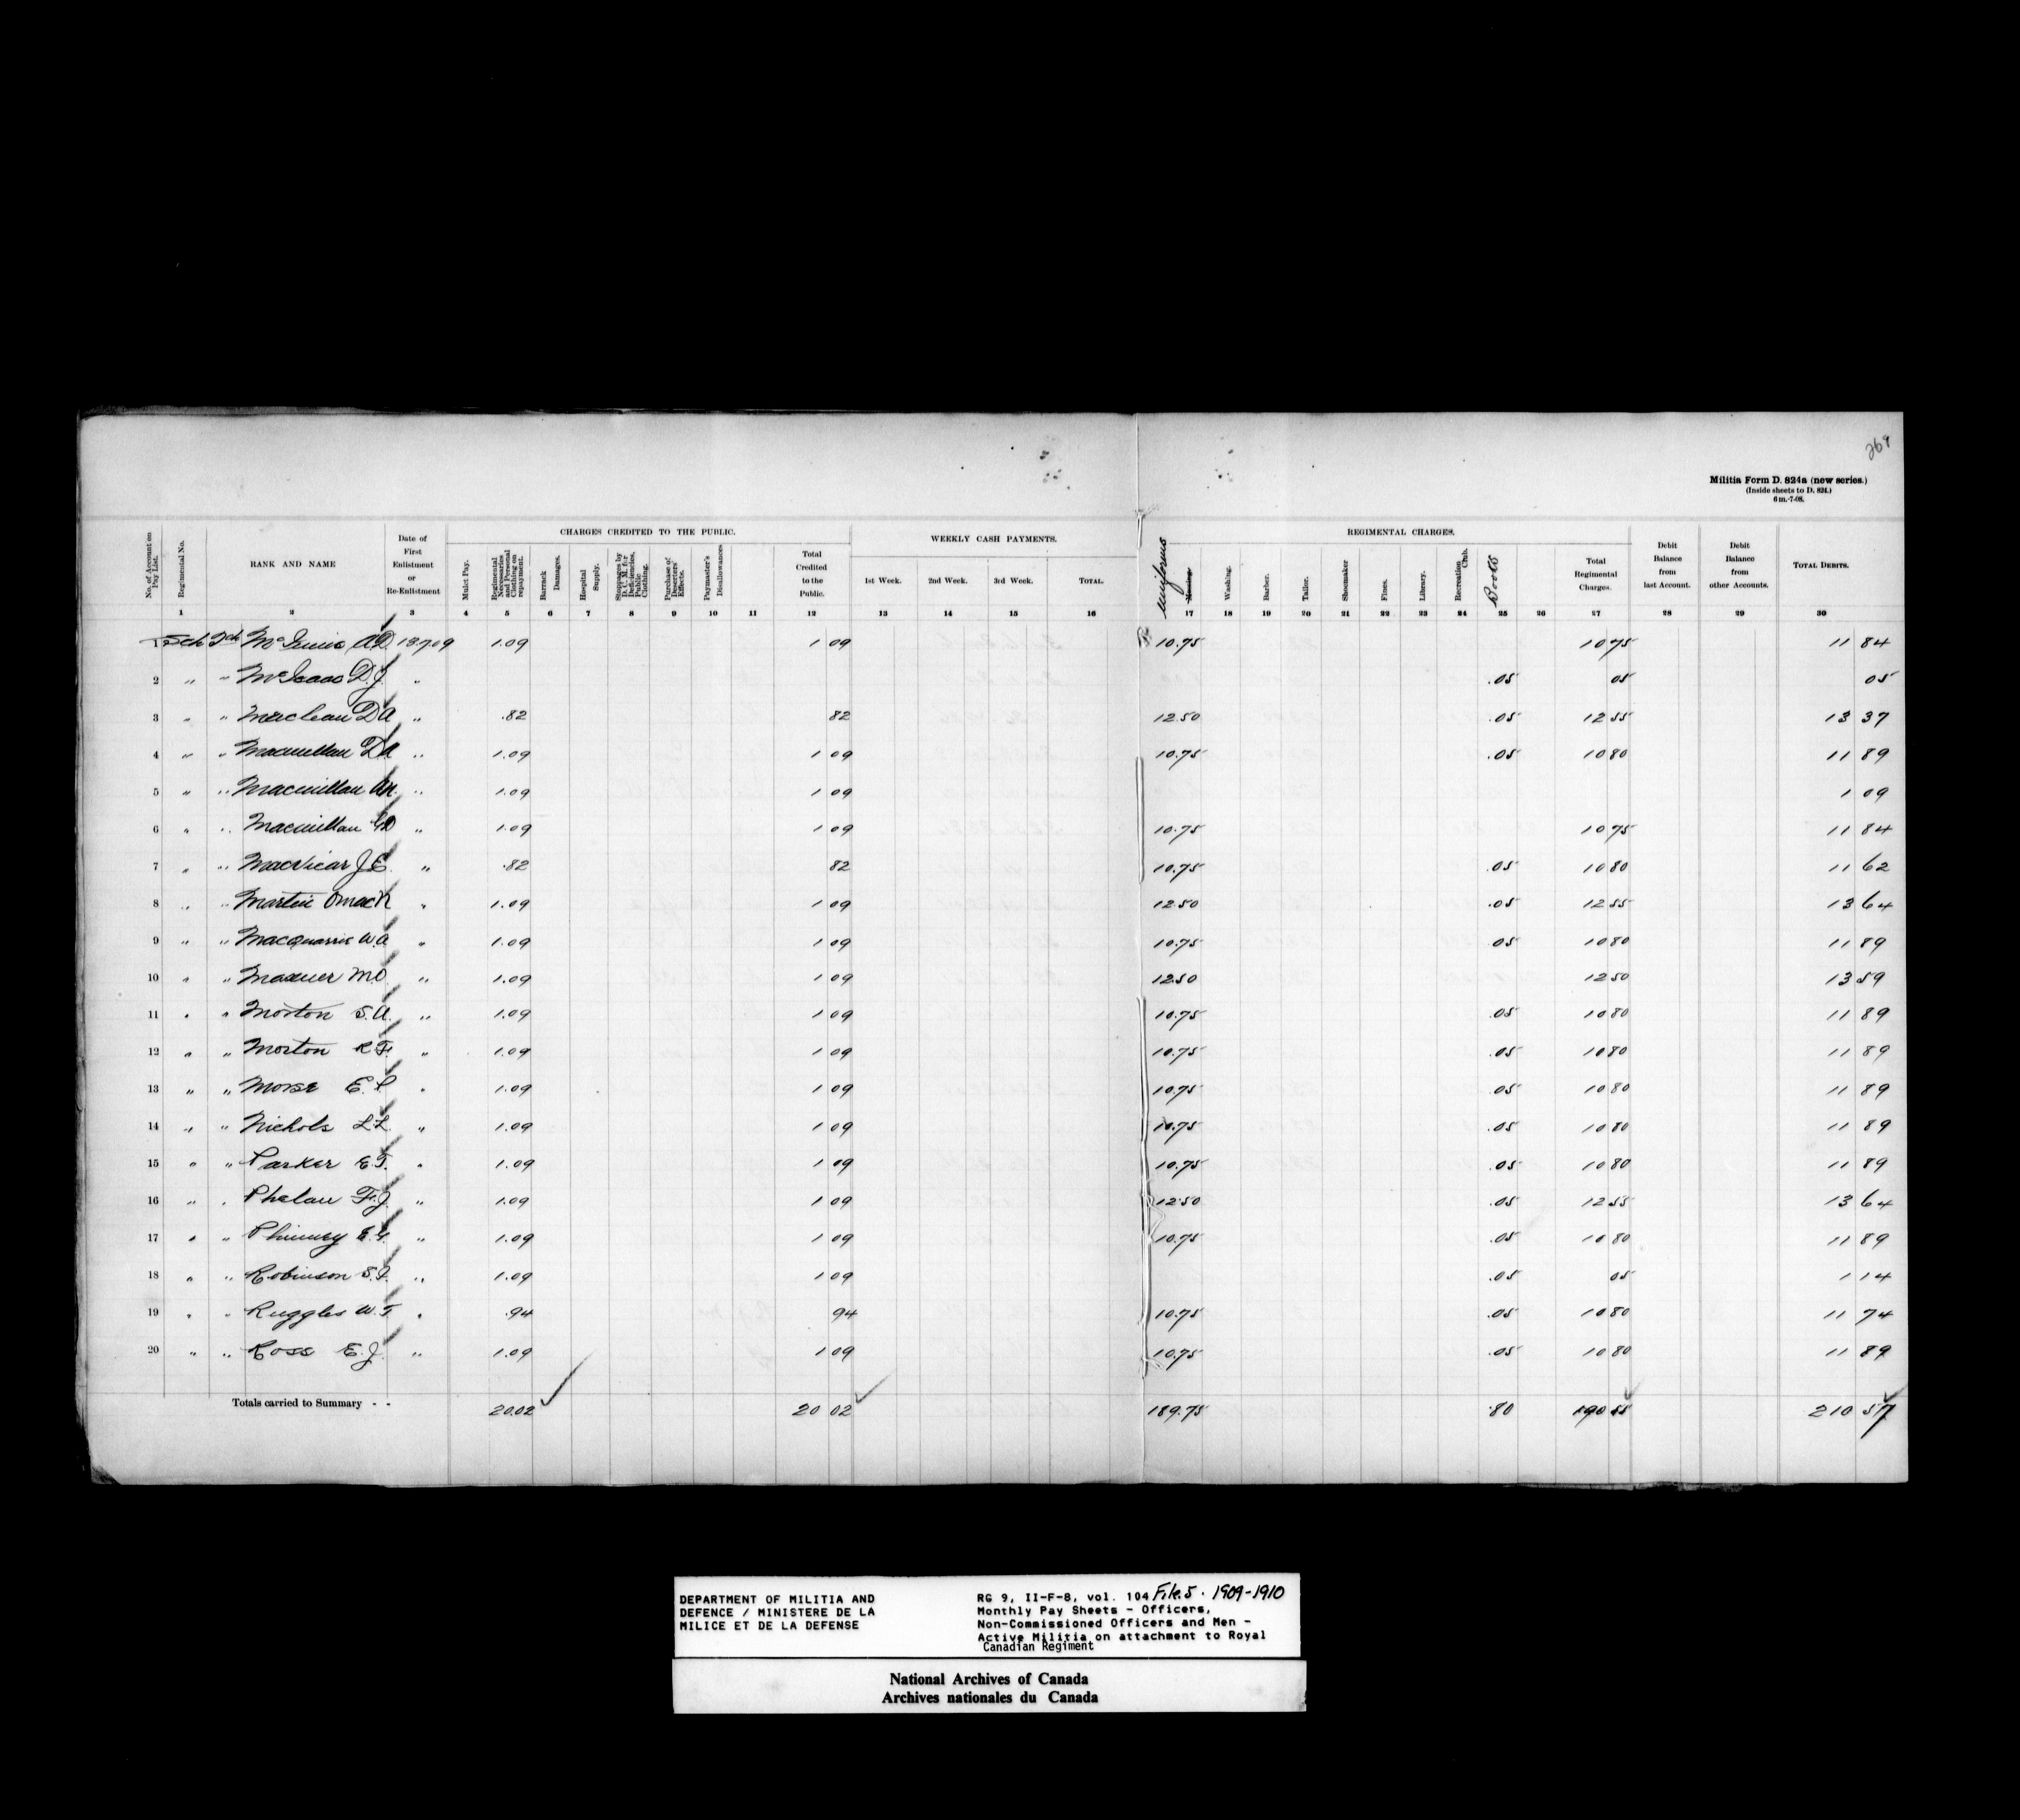 269
Militia Form D. 824a (new series.)
(Inside sheets to D. 824.)
6 m.-7-08.
CHARGES CREDITED TO THE PUBLIC. WEEKLY CASH PAYMENTS. REGIMENTAL CHARGES.
No. of Account on Pay List. Regimental No. RANK AND NAME Date of First Enlistment or Re-Enlistment Mulct Pay. Regimental Necessaries and Personal Clothing on repayment. Barrack Damages. Hospital Supply. Stoppages by D. C. M. for Deficiencies, Public Clothing. Purchase of Deserters' Effects. Paymaster's Disallowances Total Credited to the Public. 1st Week. 2nd Week. 3rd Week. TOTAL. uniforms Washing. Barber. Tailor. Shoemaker Fines. Library. Recreation Club. Boots Total Regimental Charges. Debit Balance from last Account. Debit Balance from other Accounts. TOTAL DEBITS.
1 2 3 4 5 6 7 8 9 10 11 12 13 14 15 16 17 18 19 20 21 22 23 24 25 26 27 28 29 30
1 A.D. 13.7.09 1.09 1 09 10.75 10 75 11 84
2 " " McIsaac D.J. " .05 05 05
3 " " Maclean D A " .82 82 12.50 .05 12 55 13 37
4 " " Macmillan D A " 1.09 1 09 10.75 .05 10 80 11 89
5 " " Macmillan " 1.09 1 09 1 09
6 " " Macmillan " 1.09 1 09 10.75 10 75 11 84
7 " " MacVicar J.E. " .82 82 10.75 .05 10 80 11 62
8 " " Martin " 1.09 1 09 12.50 .05 12 55 13 64
9 " " Macquarrie W.A " 1.09 1 09 10.75 .05 10 80 11 89
10 " " M.O. " 1.09 1 09 12.50 12 50 13 59
11 " " Morton S.A. " 1.09 1 09 10.75 .05 10 80 11 89
12 " " Morton R.F. " 1.09 1 09 10.75 .05 10 80 11 89
13 " " Morse E. " 1.09 1 09 10.75 .05 10 80 11 89
14 " " Nichols L.L. " 1.09 1 09 10.75 .05 10 80 11 89
15 " " Parker E.T. " 1.09 1 09 10.75 .05 10 80 11 89
16 " " Phelan F.J. " 1.09 1 09 12.50 .05 12 55 13 64
17 " " Phinney E.G. " 1.09 1 09 10.75 .05 10 80 11 89
18 " " Robinson " 1.09 1 09 .05 05 1 14
19 " " Ruggles W.T " .94 94 10.75 .05 10 80 11 74
20 " " Ross E.J. " 1.09 1 09 10.75 .05 10 80 11 89
Totals carried to Summary - - 20.02 20 02 189.75 .80 190 55 210 57
DEPARTMENT OF MILITIA AND
DEFENCE / MINISTERE DE LA
MILICE ET DE LA DEFENSE
RG 9, II-F-8, vol. 104 File 5 . 1909-1910
Monthly Pay Sheets - Officers,
Non-Commissioned Officers and Men -
Active Militia on attachment to Royal
Canadian Regiment
National Archives of Canada
Archives nationales du Canada